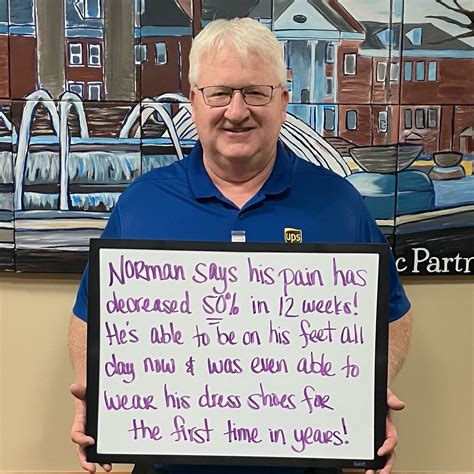 ups
c Partn
NORMAN says his pain has
decreased 50% in 12 weeks!
He's able to be on his feet all
day now & was even able to
wear his dress shoes for
the first time in years!